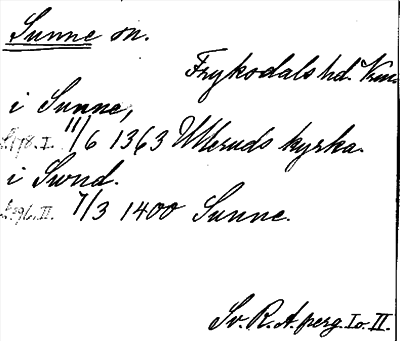 Sunne sn.
Frykodals hd. Vrm.
i Sunne,
11/6 1363 Ulleruds kyrka.
i Swnd.
7/3 1400 Sunne.
Sv. R. A. perg. I o. II.